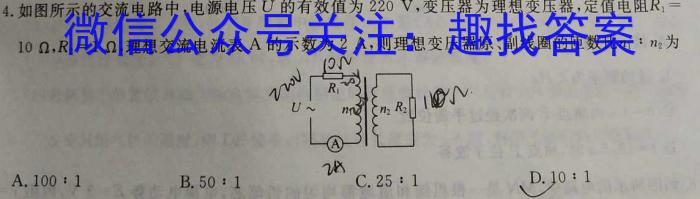 4.如图所示的交流电路中,电源电压U的有效值为220 V,变压器为理想变压器,定值电阻R₁=
10 Ω,R Ω,理想交流电流表A的示数为2 A,则理想变压器原、副线圈的匝数比 : n₂为
微信公众号关注：趣找答案
10Ω
220V
R₁
U ~
n₂ R₂
A
2A
A. 100：1 B. 50：1 C. 25：1 D. 10：1